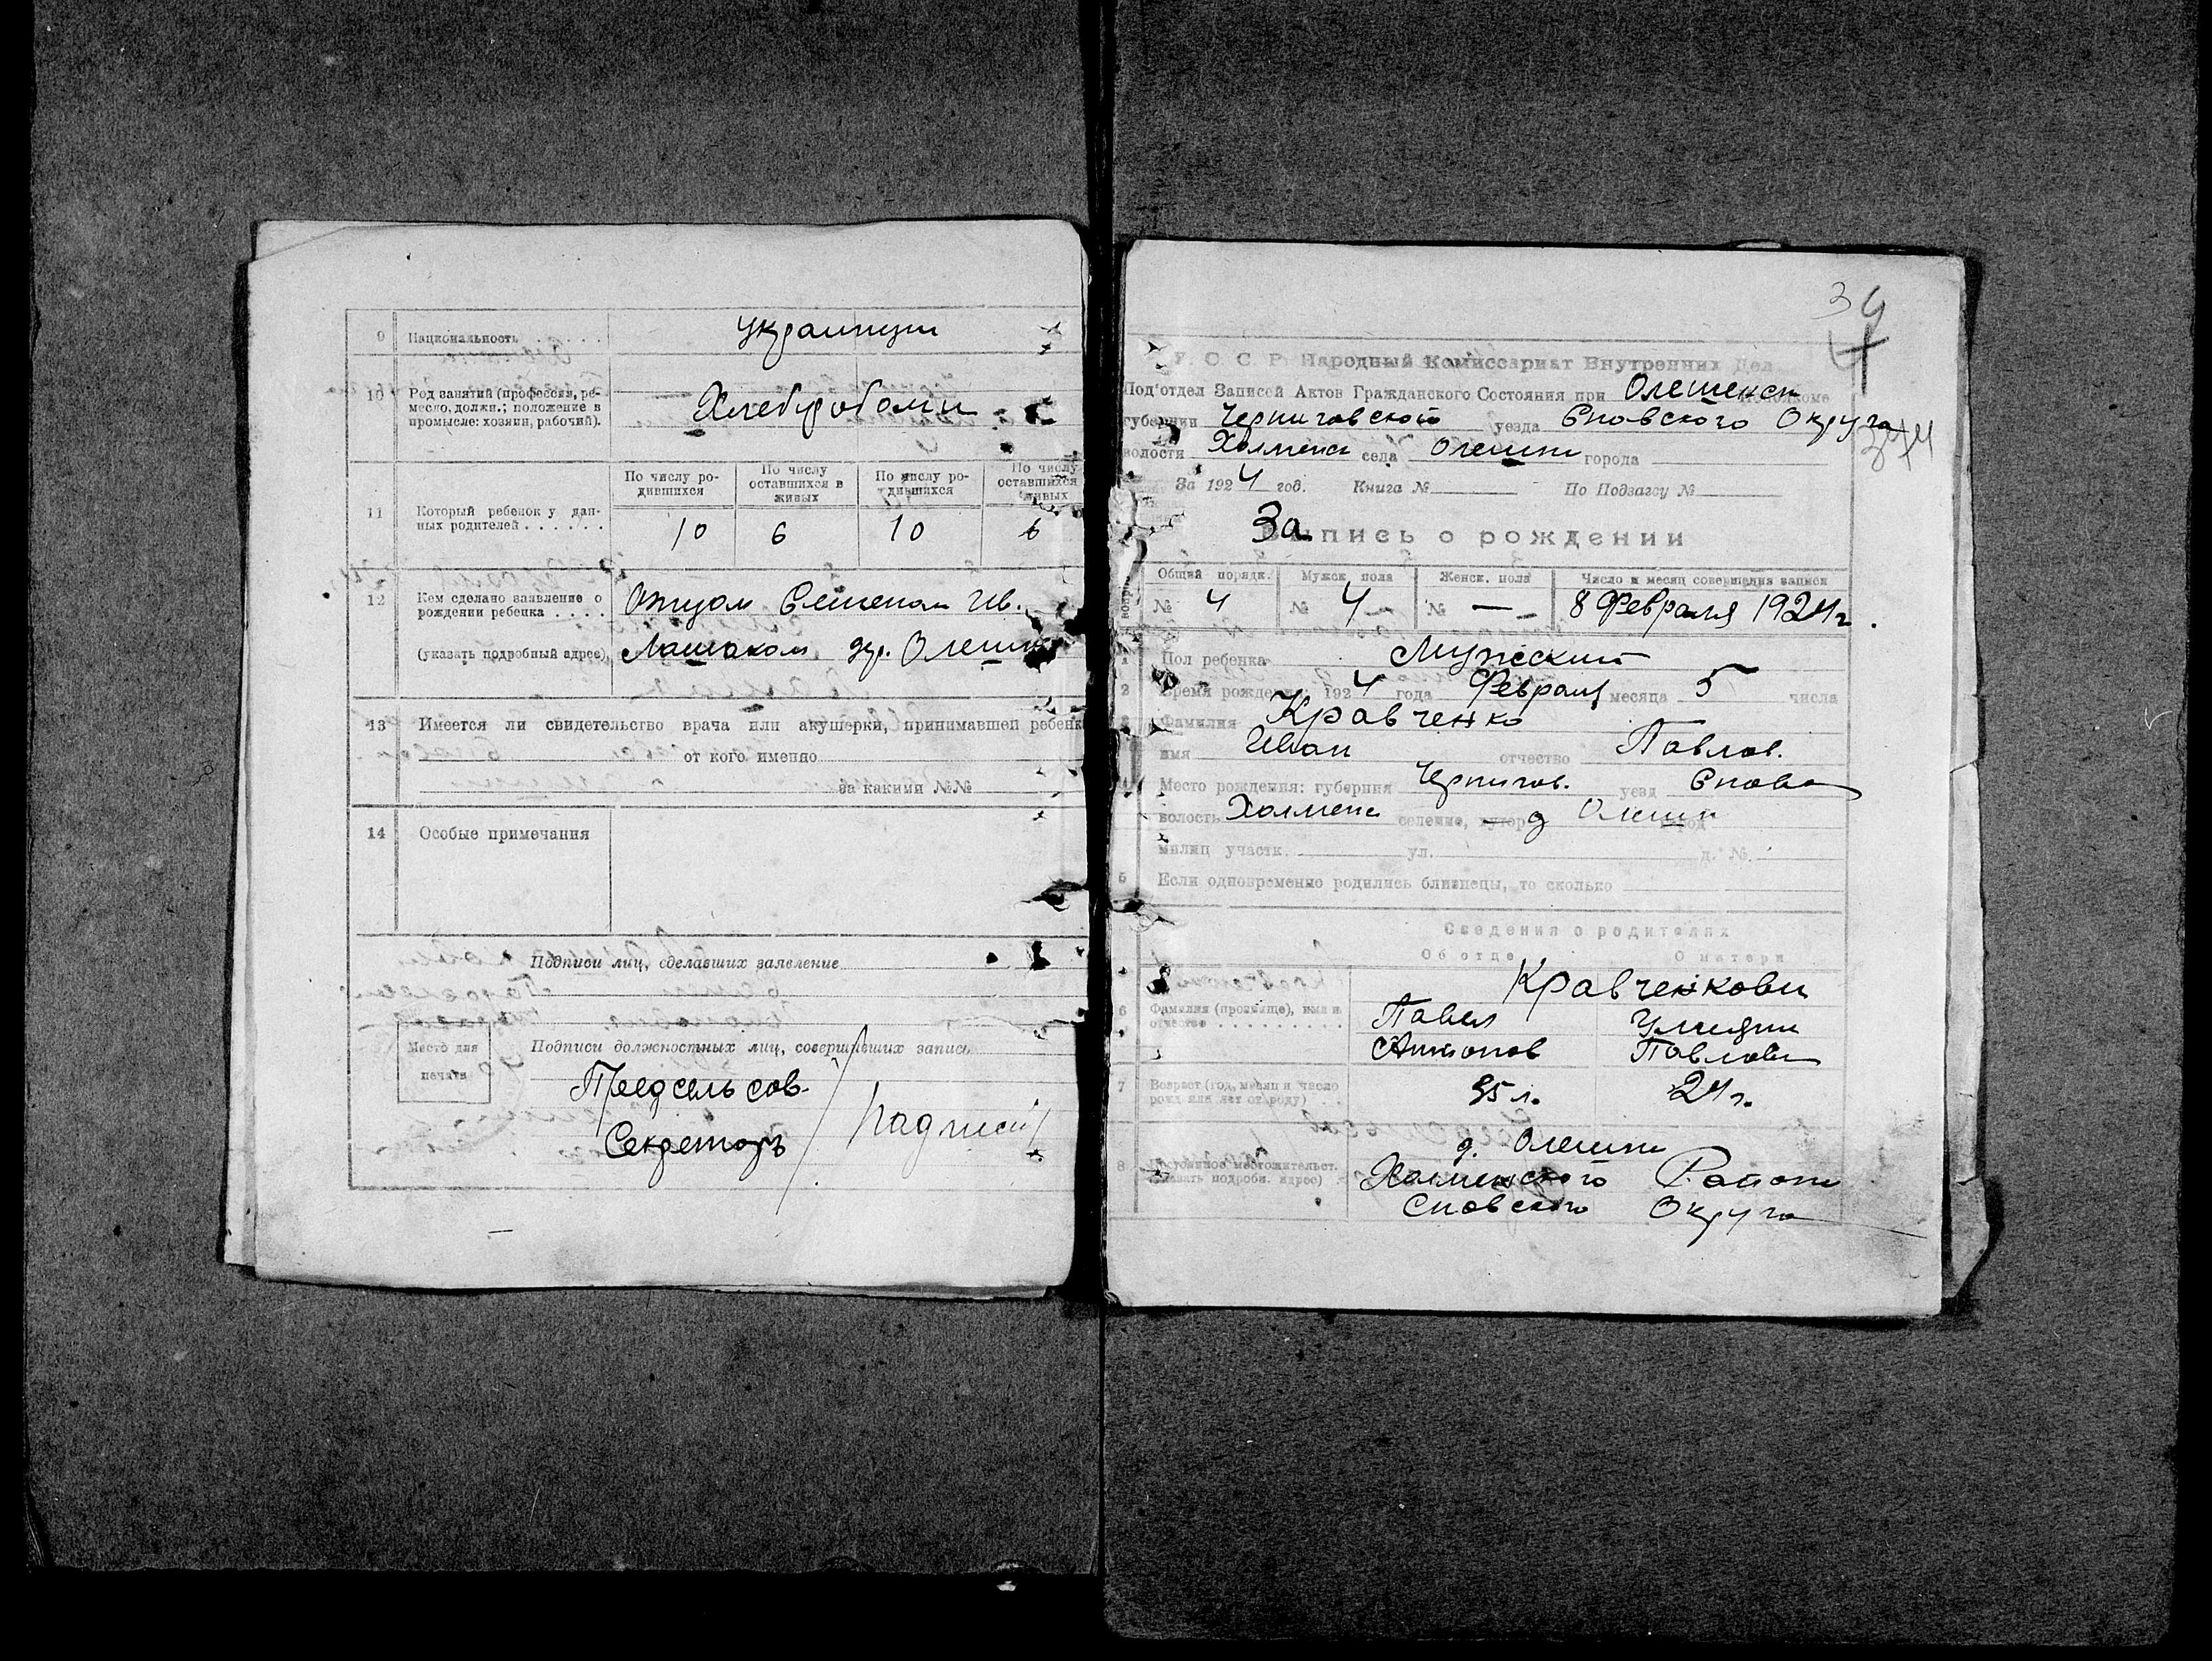 9 Национальность . . . . украинцы
10 Род занятий (профессия, ре-
месло, должн.; положение в
промысле: хозяин, рабочий).
Хлеборобами
По числу ро-
дившихся
По числу
оставшихся в
живых
По числу ро-
дившихся
По числу
оставшихся
живых
11 Который ребенок у дан-
ных родителей . . . . . .
10 6 10 6
12 Кем сделано заявление о
рождении ребенка . . . .
Отцом Семеном Ив.
(указать подробный адрес) Лашаком дер. Олешни
13 Имеется ли свидетельство врача или акушерки, принимавшей ребенка
от кого именно
за какими №№
14 Особые примечания
Подписи лиц, сделавших заявление
Место для
печати
Подписи должностных лиц, совершивших запись
Предсельсов-
Секретарь
/подписи/
34
4
У. С. С. Р. Народный Комиссариат Внутренних Дел
Под'отдел Записей Актов Гражданского Состояния при Олешенск
губернии Черниговской уезда Сновского Округа
волости Холменск села Олешни города
За 1924 год. Книга № По Подзагсу №
Запись о рождении
Общий порядк. Мужск. пола Женск. пола Число и месяц совершения записи
№ 4 № 4 № — 8 Февраля 1924 г.
1 Пол ребенка Мужский
2 Время рождения: 1924 года Февраля месяца 5 числа
3 Фамилия Кравченко
имя Иван отчество Павлов.
4 Место рождения: губерния Чернигов. уезд Сновс
волость Холменс селение, хутор д Олешни город
милиц участк. ул. д. №.
5 Если одновременно родились близнецы, то сколько
Сведения о родителях
Об отце О матери
Кравченковы
6 Фамилия (прозвище), имя и
отчество . . . . . . . . .
Павел
Антонов
Павлов
7 Возраст (год, месяц и число
рожд. или лет от роду) . .
35 л. 24 г.
8 Постоянное местожительст.
(указать подробн. адрес) .
д. Олешни
Холменского Района
Сновского Округа